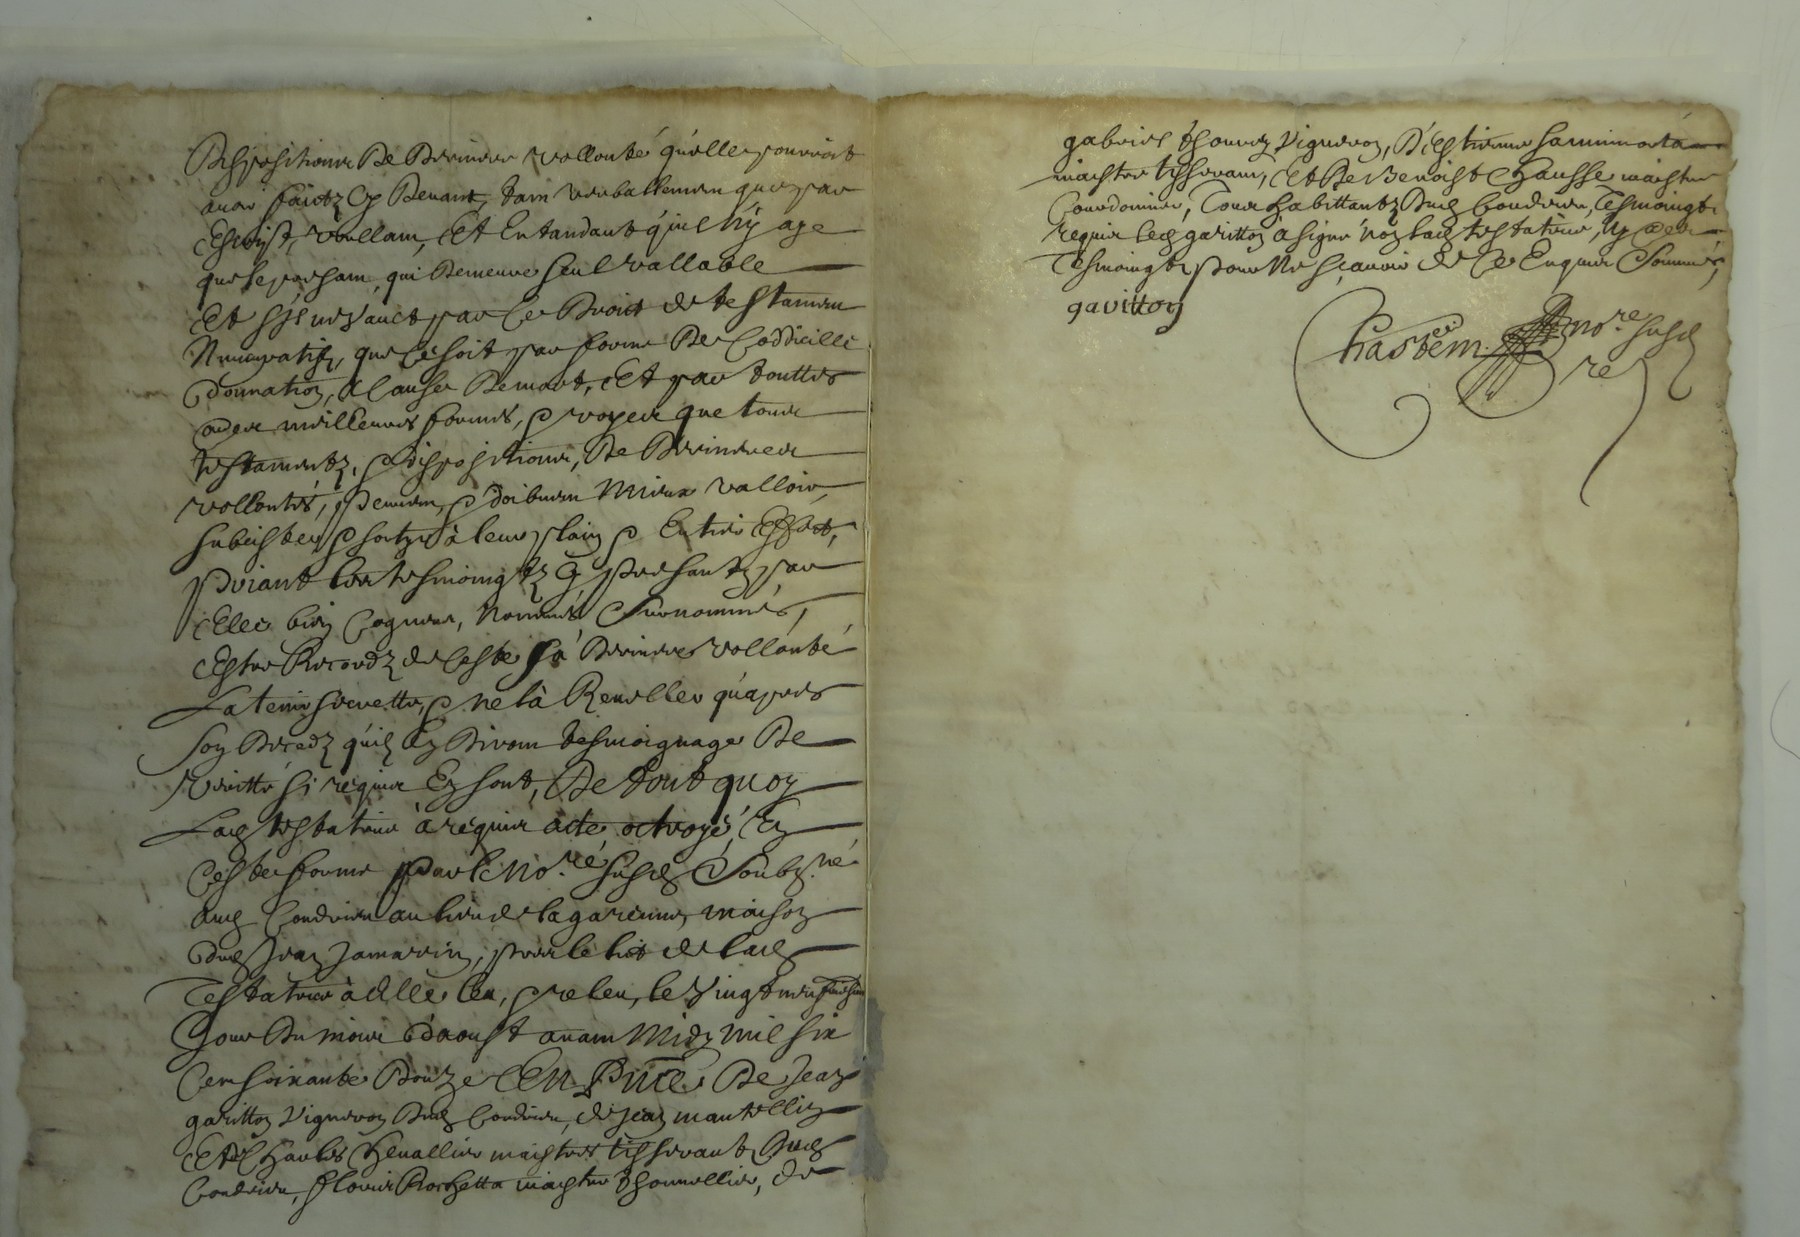 dispositions de derniere vollonté qu'elle pourroit
avoir faictz cy devant, tam verballement que par
escript, voullam, Et Entandant qu'il n'y aye
que le presam, qui demeure seul vallable
Et s'il ne vauct par le droict de testamen
Nuncupatif, que ce soit par forme de Coddicille
donnation, A cause de mort, Et par touttes
autres meilleures formes, & voyes que tous
testamentz, & dispositions, de dernieres
vollontés, peuven & doibven Mieux valloir,
subcister & sortyr à leur plain & Entier Effect,
priant les tesmoingtz cy presantz par
Elle bien Cogneus, Nommés Surnommés,
Estre Recordz de Ceste sa derniere vollonté
La tenir secrette, & ne la Reveller qu'apres
son decedz qu'ilz en diron tesmoignage de
veritté si requis En sont, De tout quoy
Lad testatrice à requis acte octroyé, En
Ceste forme par le No.re susd Soubz.né
aud Condrieu au lieu de la garenne, maison
dud Jean Jamarin, pres le lict de lad
Testatrice à Elle leu, & releu, le vingt
Jour du mois d'aoust avam Midy mil six
Cen soixante douze En p̄nce De Jean
garitton Vigneron dud Condrieu, de Jean mantellin
Et Charles Chevallier maistres tisserantz dud
Condrieu, flouris Rochette maistre thonnellier, de
gabriel thouvez Vigneron, D'estienne
maistre tisseram, Et De Benoist Chausse maistre
Courdonnier, Tous habittantz dud Condrieu, Tesmoingtz
requis led garitton à signé non lad testatrice, Ny aues
Tesmoingtz pour Ne sçavoir de Ce Enquis Sommés,
garitton
no.re susd
re